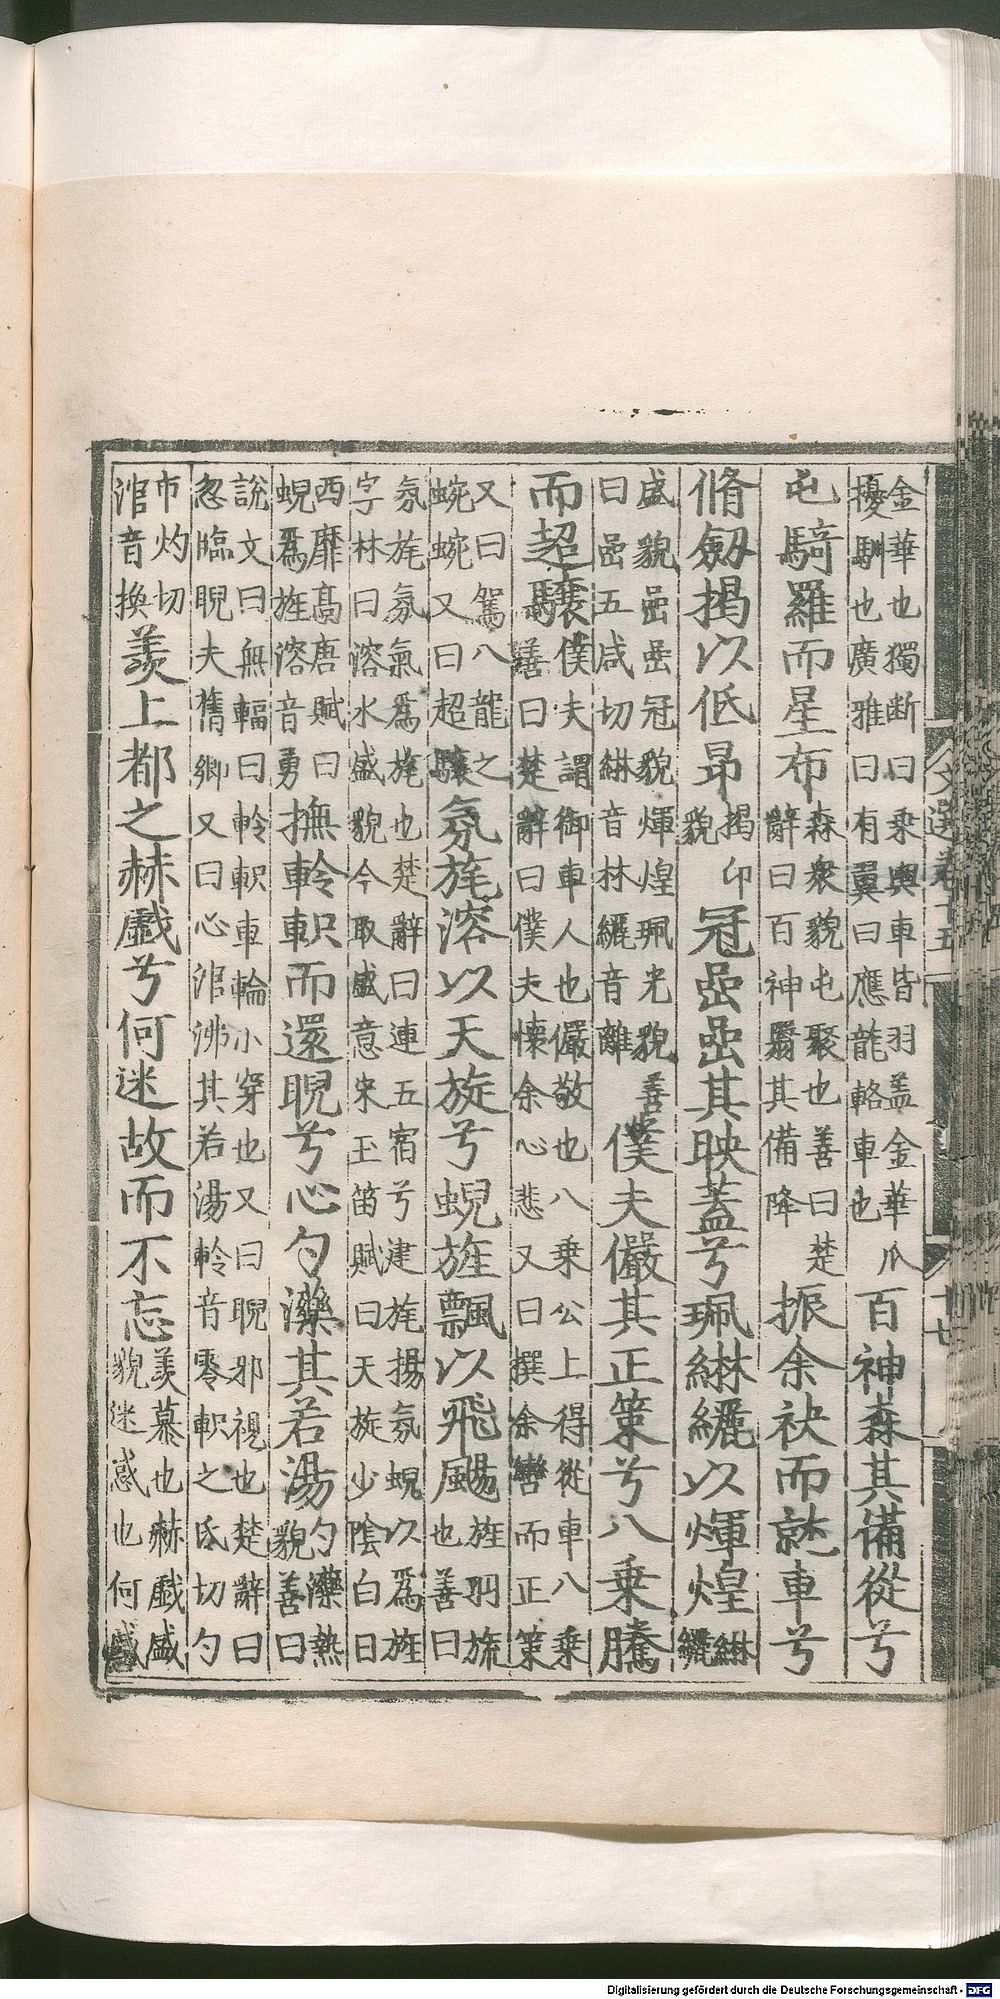 金華也獨斷曰乘輿車皆羽盖金華爪
擾馴也廣雅曰有翼曰應龍輅車也
百神森其備從兮
屯騎羅而星布
森衆貌屯聚也善曰楚
辭曰百神翳其備降
振余袂而就車兮
脩劔揭以低昂
揭卬
貌
冠嵒嵒其映蓋兮珮綝纚以煇煌
綝
纚
盛貌嵒嵒冠貌煇煌珮光貌善
曰嵒五咸切綝音林纚音離
僕夫儼其正策兮八乗騰
而超驤
僕夫謂御車人也儼敬也八乗公上得從車八乗
善曰楚辭曰僕夫懷余心悲又曰撰余轡而正策
又曰駕八龍之
蜿蜿又曰超驤
氛旄溶以天旋兮蜺旌飄以飛颺
旌羽旒
也善曰
氛旄氛氣爲旄也楚辭曰連五宿兮建旄揚氛蜺以爲旌
字林曰溶水盛貌今取盛意宋玉笛賦曰天旋少陰白日
西靡高唐賦曰
蜺爲旌溶音勇
撫軨軹而還睨兮心勺㶟其若湯
勺㶟熱
貌善曰
說文曰無輻曰軨軹車輪小穿也又曰睨邪視也楚辭曰
忽臨睨夫舊鄉又曰心涫沸其若湯軨音零軹之氏切勺
市灼切
涫音換
羨上都之赫戲兮何迷故而不忘
羨慕也赫戲盛
貌迷惑也何
文選卷十五
十七
Digitalisierung gefördert durch die Deutsche Forschungsgemeinschaft - DFG